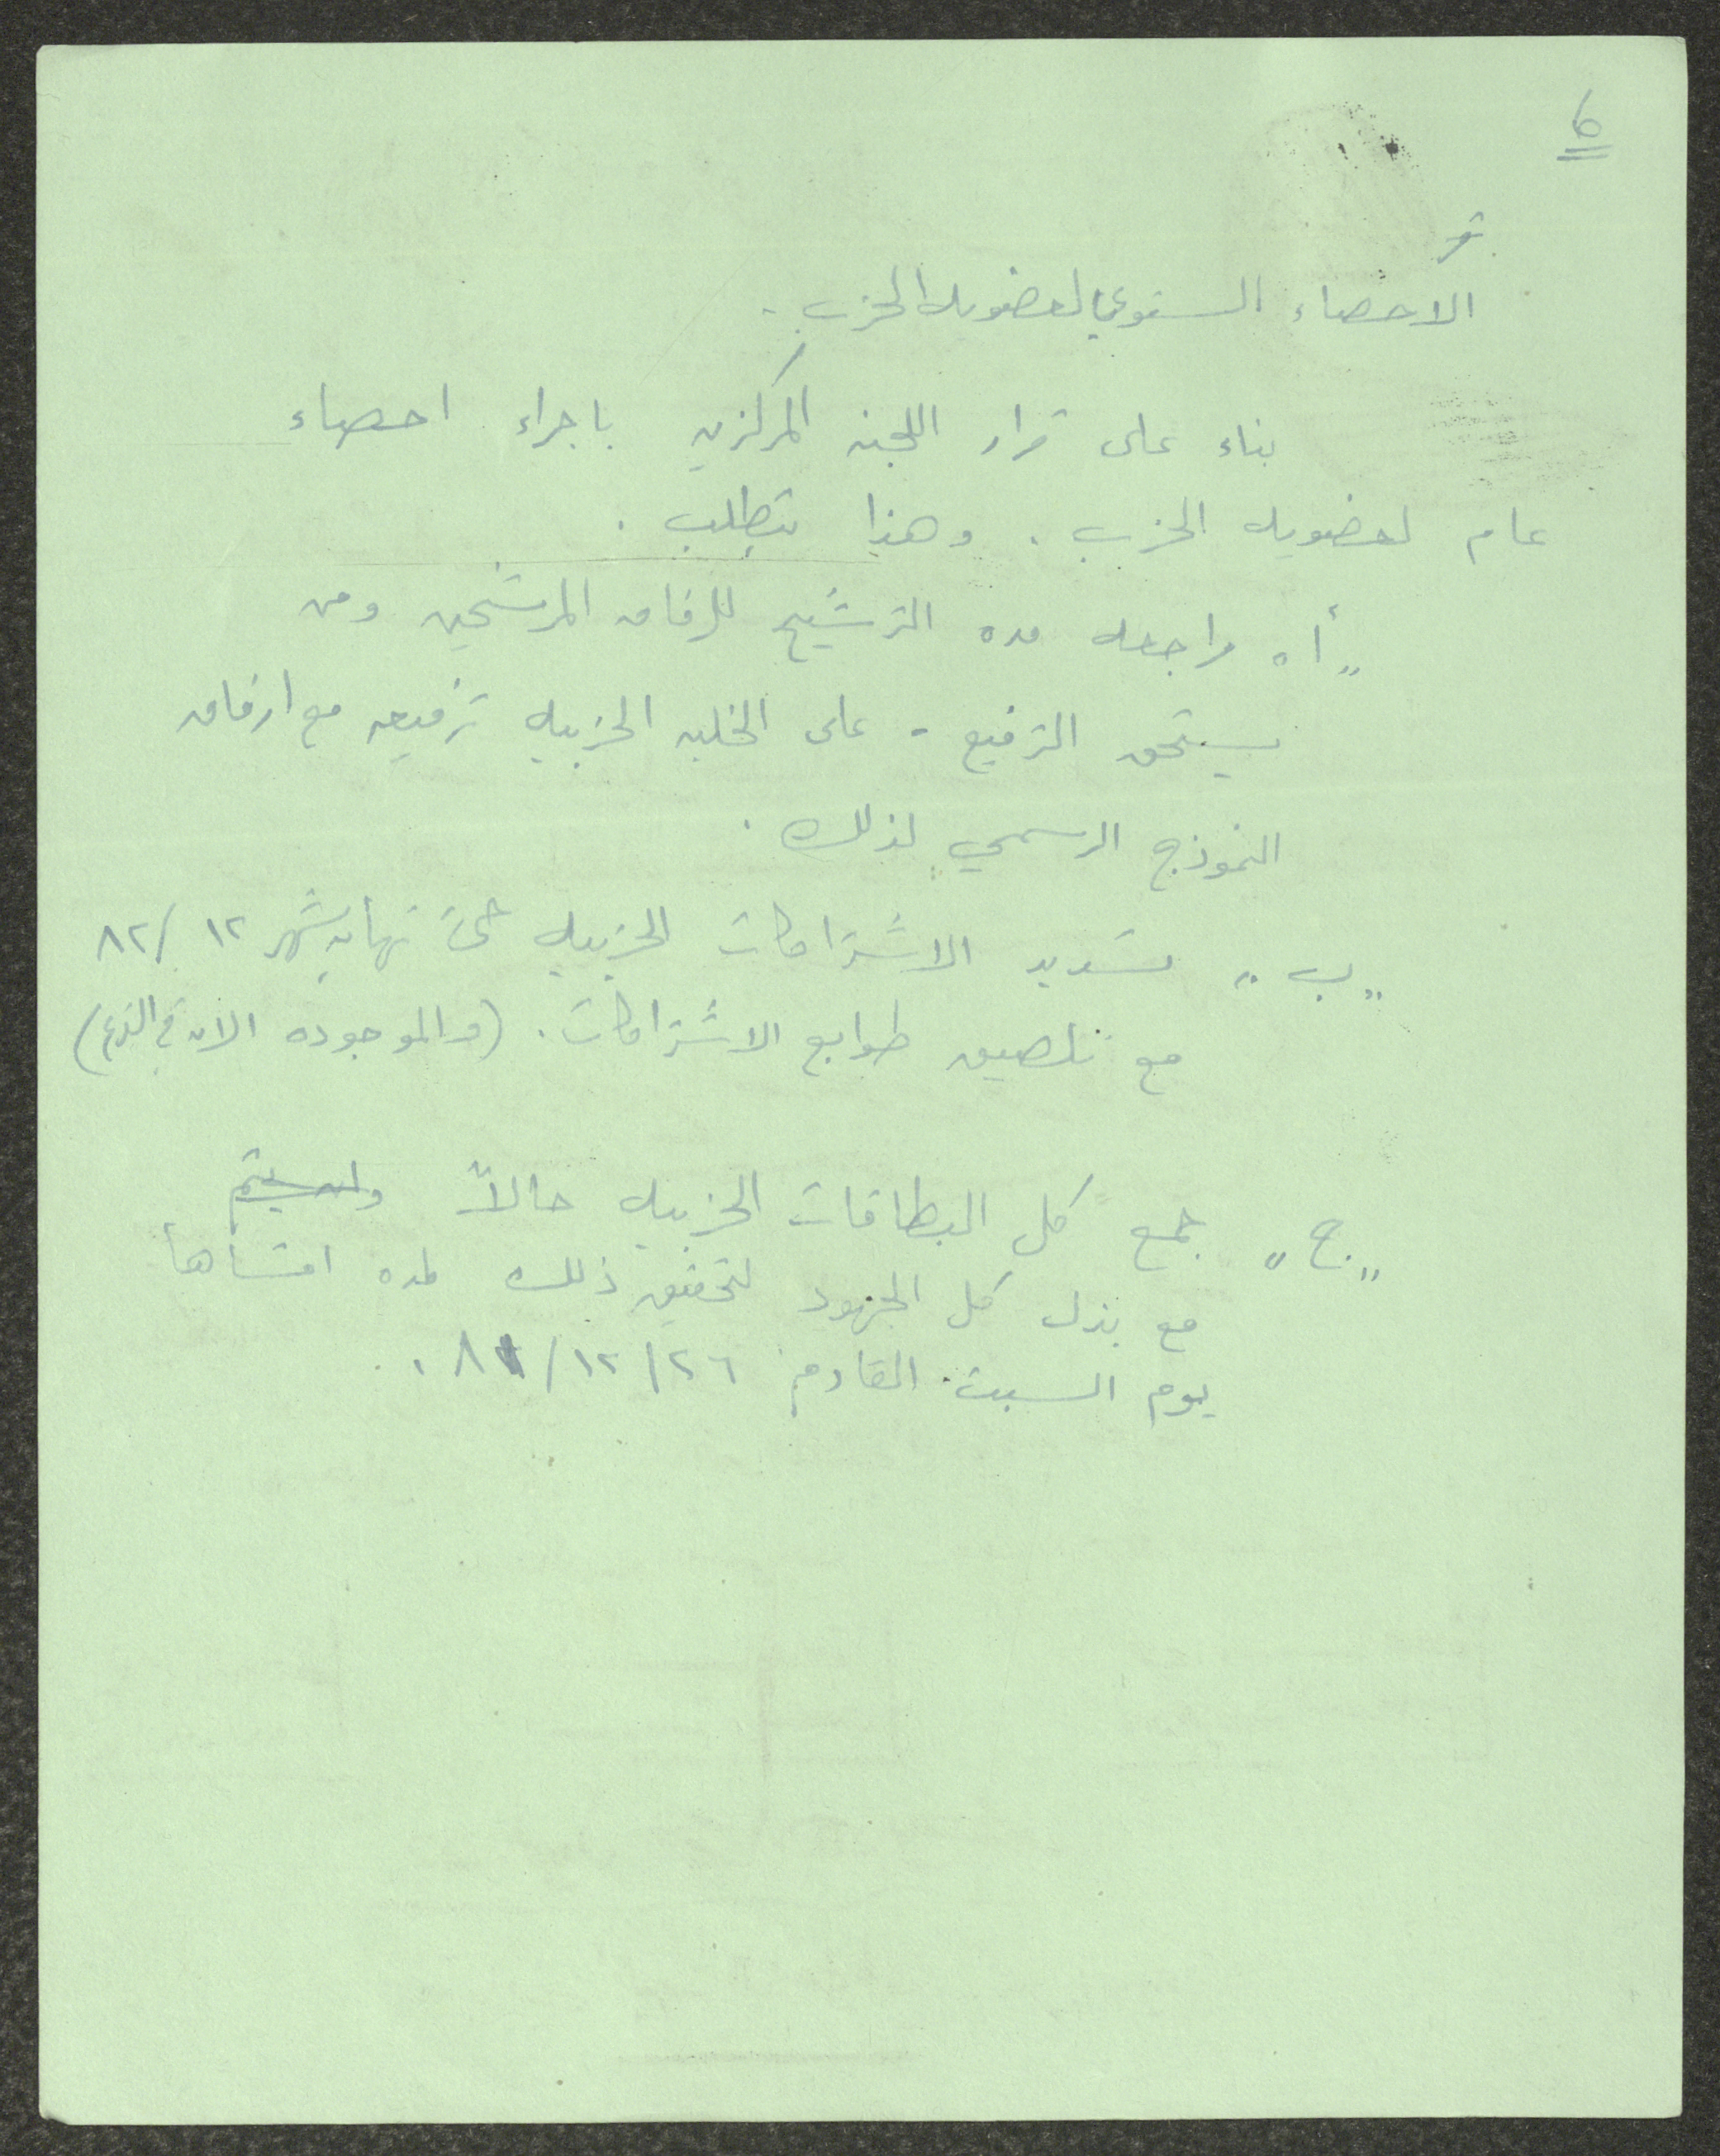 6
الاحصاء السنوي لعضويه الحزب.
بناء على قرار اللجنه المركزيه باجراء احصاء
عام لعضويه الحزب . وهذا يتطلب .
"أ" مراجعه مده الترشيح للرفاق المرشحين ومن
يستحق الترفيع - على الخليه الحزبيه ترفيعه مع ارفاق
النموذج الرسمي لذلك .
"ب" تسديد الاشتراكات الحزبيه حتى نهايه شهر ١٢ /٨٢
مع تلصيق طوابع الاشتراكات . (والموجوده الان في الفرع)
"ج" جمع كل البطاقات الحزبيه حالاً وسيتم
مع بذل كل الجهود لتحقيق ذلك لمده اقصاها
يوم السبت القادم ٢٦/ ١٢/ ٨١ .